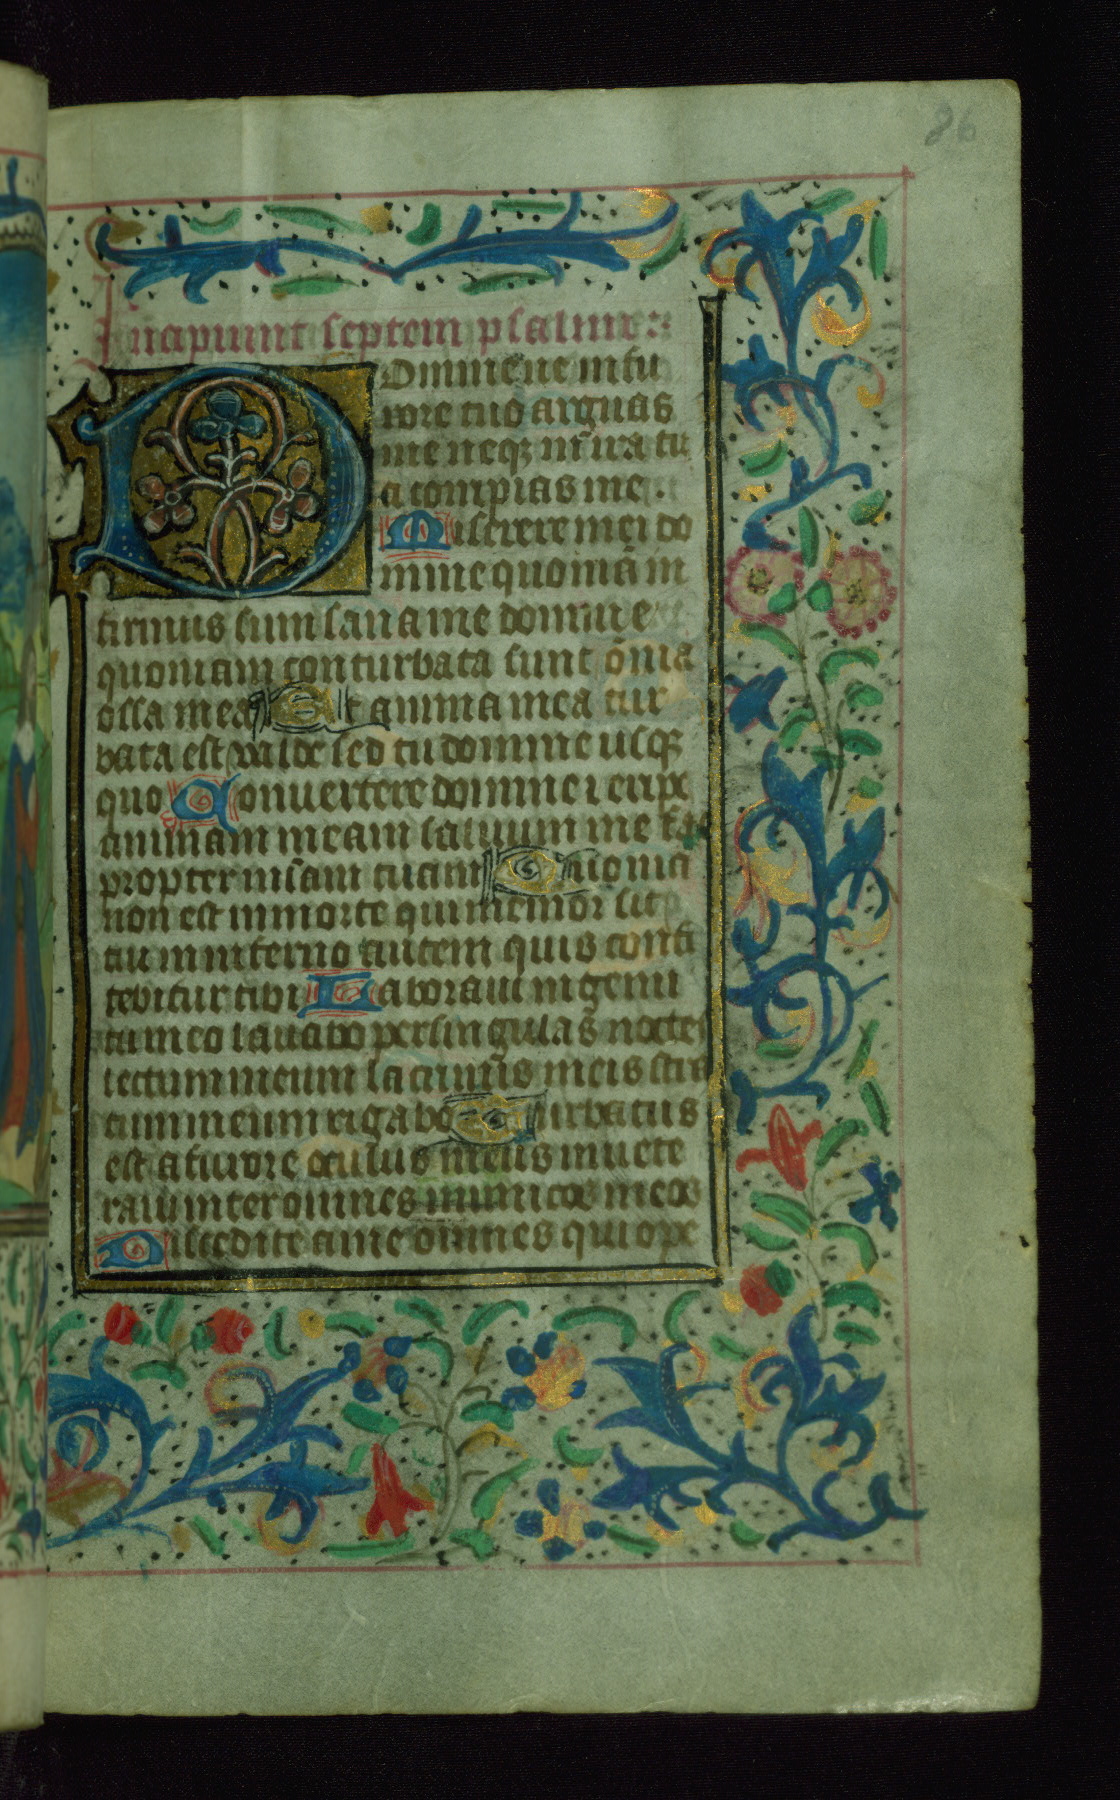 86
Incipiunt septem psalmi
Domine ne in fu
rore tuo arguas
me neq; in ira tu
a corripias me.
Miserere mei do
mine quoniā in
firmus sum sana me domine
quoniam conturbata sunt ōnia
ossa mea Et anima mea tur
bata est valde sed tu domine usq;
quo Convertere domine ⁊ eripe
animam meam salvum me fac
propter mīam tuam Quonia
non est in morte qui memor sit
tui in inferno autem quis confi
tebitur tibi Laboravi in gemi
tu meo lavabo per singulas noctes
lectum meum lacrimis meis stra
tum meum rigabo Turbatus
est a furore oculus meus invete
ravi inter omnes inimicos meos
Discedite a me omnes qui ope